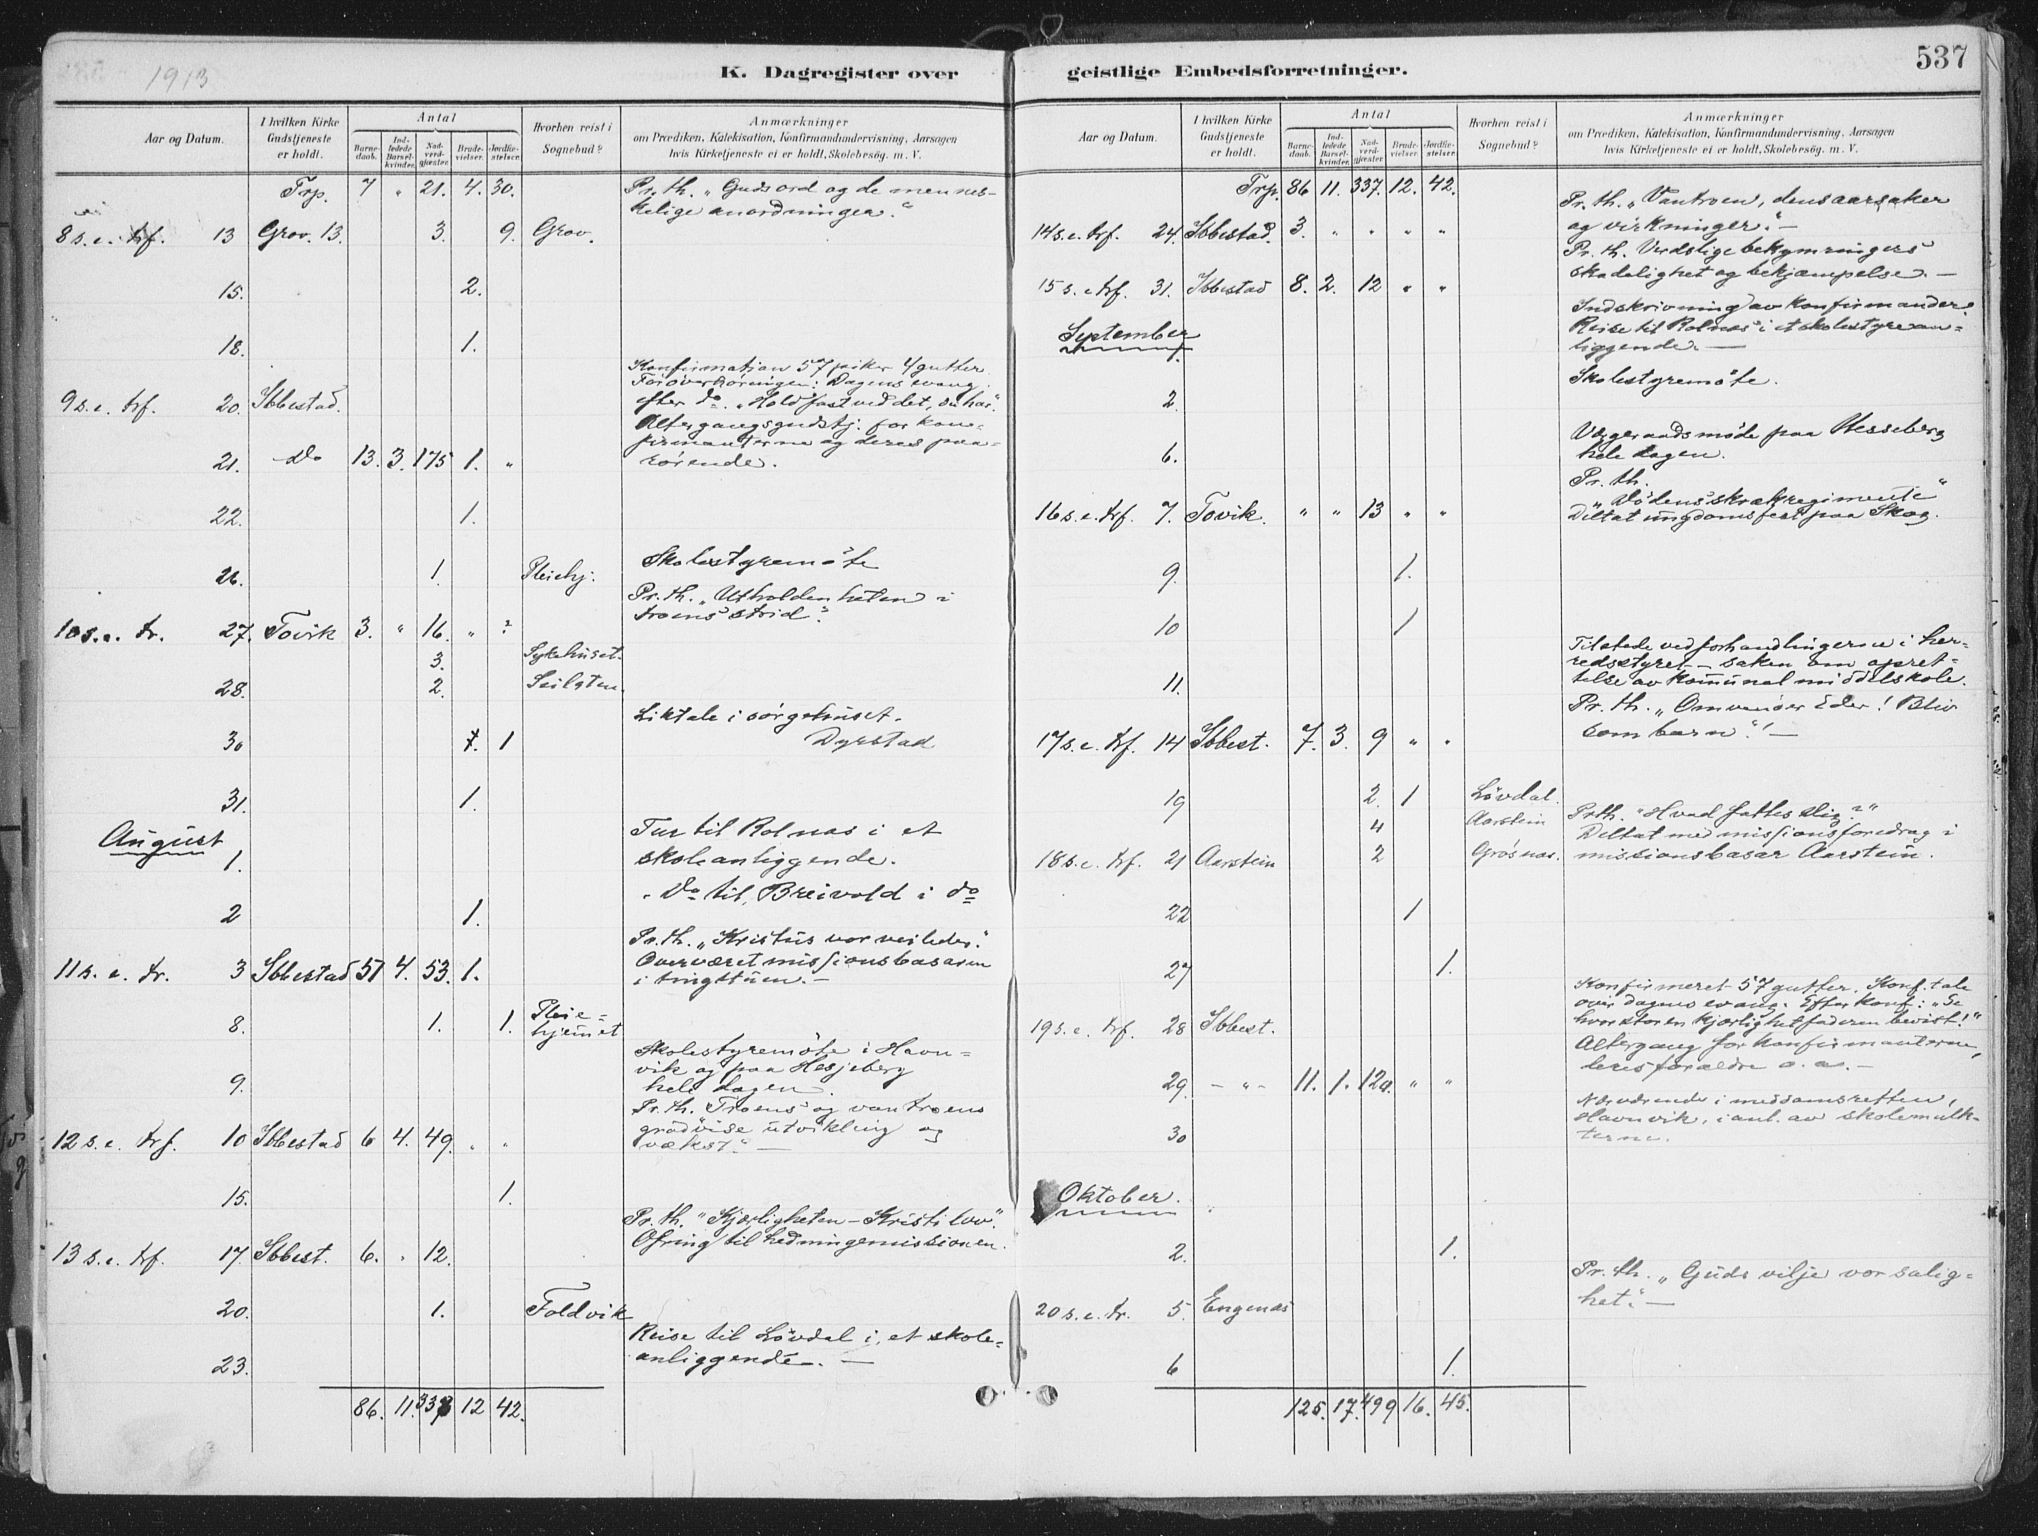 1913
K. Dagregister over
geistlige Embedsforretninger.
537
Aar og Datum.
I hvilken Kirke Gudstjeneste er holdt.
Antal
Barnedaab.
Indledede Barselkvinder.
Nadverdgjæster.
Brudevielser.
Jordfæstelser.
Hvorhen reist i Sognebud?
Anmærkninger
om Prædiken, Katekisation, Konfirmandundervisning, Aarsagen
hvis Kirketjeneste ei er holdt, Skolebesøg. m. V.
Trp. 7 " 21. 4. 30. Pr. th. "Guds ord og de mennes-
kelige anordninger."
8 s. e. trf. 13 Grov. 13. 3. 9. Grov.
15. 2.
18. 1.
Konfirmation 57 piker 4 gutter
Før overhøringen: Dagens evang.
9 s. e. trf. 20. Ibbestad. efter do. "Hold fast ved det, du har".
Altergangsgudstj. for kon-
firmanterne og deres paa-
21. do 13. 3. 175 1. " rørende.
22. 1.
26. 1. Pleiehj. Skolestyremøte
Pr. th. "Utholdenheten i
troens strid".
10 s. e. tr. 27. Tovik 3. " 16. " ?
3. Sykehuset.
28. 2.
Liktale i sørgehuset.
30 7. 1 Dyrstad
31. 1.
August
1. Tur til Rolnas i et
skoleanliggende.
2 1. " Do til Breivold i do
Pr. th. "Kristus vor veileder."
11 s. e. tr. 3 Ibbestad 51 4. 53. 1. Overværet missionsbasaren
i tingstuen. -
8. 1. 1. Pleie-
hjemet
Skolestyremøte i Havn-
9. vik og paa Hesjeberg
hele dagen.
Pr. th. Troens og vantroens
12 s. e. trf. 10 Ibbestad 6 4. 49. " " gradvise utvikling og
vækst." -
15. 1.
Pr. th. "Kjærligheten - Kristi lov".
13 s. e. trf. 17. Ibbest. 6. " 12. Ofring til hedningemissionen.
20. 1. Foldvik
23. Reise til Løvdal i et skole-
anliggende. -
86. 11. 337 12 42.
Aar og Datum.
I hvilken Kirke Gudstjeneste er holdt.
Antal
Barnedaab.
Indledede Barselkvinder.
Nadverdgjæster.
Brudevielser.
Jordfæstelser.
Hvorhen reist i Sognebud?
Anmærkninger
om Prædiken, Katekisation, Konfirmandundervisning, Aarsagen
hvis Kirketjeneste ei er holdt, Skolebesøg. m. V.
Trp. 86 11. 337. 12. 42. Pr. th. "Vantroen, dens aarsaker
14 s. e. trf. 24. Ibbestad. 3. " " " " og virkninger". -
Pr. th. Verdslige bekymringers
15 s. e. trf. 31. Ibbestad 8. 2. 12 " " skadelighet og bekjæmpelse. -
September
1. Indskrivning av konfirmander.
Reise til Rolnas i et skolestyrean-
liggende. -
2. Skolestyremøte.
6. Vergeraadsmøde paa Hesseberg
hele dagen.
Pr. th.
16 s. e. trf. 7. Tovik. " " 13 " " "Dødens skrækregimente"
Deltat ungdomsfest paa Skog.
9. 1.
10 1
11. Tilstede ved forhandlingerne i her-
redsstyret - saken om opret-
telse av kommunal middelskole.
Pr. th. "Omvender Eder! Bliv
17 s. e. trf. 14 Ibbest. 7. 3. 9 " " som barn"! -
19 2. 1 Løvdal.
4 Aarstein
Pr th. "Hvad fattes dig?"
Deltat med missionsforedrag i
18 s. e. trf. 21 Aarstein 2 Grøsnas. missionsbasar Aarstein.
22 1
27 1.
Konfirmeret 57 gutter. Konf. tale
over dagens evang. Efter konf: "Se
19 s. e. trf. 28 Ibbest. hvor stor en kjærlighet faderen bevist!"
Altergang for konfirmanterne,
29. - " - 11. 1. 129. " " deres forældre o. a. -
Nærværende i meddomsretten,
30 Havnvik, i anl. av skolemulk-
terne.
Oktober.
2. 1.
Pr. th. "Guds vilje vor salig-
20 s. e. tr. 5. Engenas het". -
6 1.
125. 17. 499 16. 45.